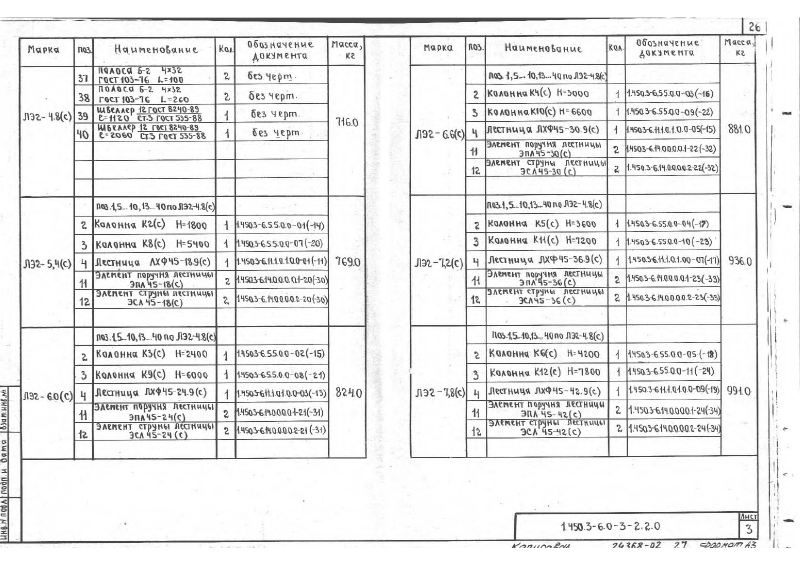 26
Марка поз. Наименование Кол. Обозначение документа Масса, кг
ЛЭ2-4.8(с) 716.0
37 Полоса Б-2 4х32 ГОСТ 103-76 L=100 2 без черт.
38 Полоса Б-2 4х32 ГОСТ 103-76 L=260 2 без черт.
39 Швеллер 12 ГОСТ 8240-89 ℓ=1120 Ст.3 ГОСТ 535-88 1 без черт.
40 Швеллер 12 ГОСТ 8240-89 ℓ=2060 Ст.3 ГОСТ 535-88 1 без черт.
ЛЭ2-5,4(с) 769.0
поз. 1,5...10,13...40 по ЛЭ2-4.8(с)
2 Колонна К2(с) Н=1800 1 1.450.3-6.5.5.0.0-01(-14)
3 Колонна К8(с) Н=5400 1 1.450.3-6.5.5.0.0-07(-20)
4 Лестница ЛХФ45-18.9(с) 1 1.450.3-6.11.1.0.1.0.0-01(-11)
11 Элемент поручня лестницы ЭПЛ45-18(с) 2 1.450.3-6.14.0.0.0.0.1-20(-30)
12 Элемент струны лестницы ЭСЛ45-18(с) 2 1.450.3-6.14.0.0.0.0.2-20(-30)
ЛЭ2-6.0(с) 824.0
поз. 1,5...10,13...40 по ЛЭ2-4.8(с)
2 Колонна К3(с) Н=2400 1 1.450.3-6.5.5.0.0-02(-15)
3 Колонна К9(с) Н=6000 1 1.450.3-6.5.5.0.0-08(-21)
4 Лестница ЛХФ45-24.9(с) 1 1.450.3-6.11.1.0.1.0.0-03(-13)
11 Элемент поручня лестницы ЭПЛ45-24(с) 2 1.450.3-6.14.0.0.0.0.1-21(-31)
12 Элемент струны лестницы ЭСЛ45-24(с) 2 1.450.3-6.14.0.0.0.0.2-21(-31)
Марка поз. Наименование Кол. Обозначение документа Масса, кг
ЛЭ2-6.6(с) 881.0
поз. 1,5...10,13...40 по ЛЭ2-4.8(с)
2 Колонна К4(с) Н=3000 1 1.450.3-6.5.5.0.0-03(-16)
3 Колонна К10(с) Н=6600 1 1.450.3-6.5.5.0.0-09(-22)
4 Лестница ЛХФ45-30.9(с) 1 1.450.3-6.11.1.0.1.0.0-05(-15)
11 Элемент поручня лестницы ЭПЛ45-30(с) 2 1.450.3-6.14.0.0.0.0.1-22(-32)
12 Элемент струны лестницы ЭСЛ45-30(с) 2 1.450.3-6.14.0.0.0.0.2-22(-32)
ЛЭ2-7,2(с) 936.0
поз. 1,5...10,13...40 по ЛЭ2-4.8(с)
2 Колонна К5(с) Н=3600 1 1.450.3-6.5.5.0.0-04(-17)
3 Колонна К11(с) Н=7200 1 1.450.3-6.5.5.0.0-10(-23)
4 Лестница ЛХФ45-36.9(с) 1 1.450.3-6.11.1.0.1.0.0-07(-17)
11 Элемент поручня лестницы ЭПЛ45-36(с) 2 1.450.3-6.14.0.0.0.0.1-23(-33)
12 Элемент струны лестницы ЭСЛ45-36(с) 2 1.450.3-6.14.0.0.0.0.2-23(-33)
ЛЭ2-7,8(с) 991.0
поз. 1,5...10,13...40 по ЛЭ2-4.8(с)
2 Колонна К6(с) Н=4200 1 1.450.3-6.5.5.0.0-05(-18)
3 Колонна К12(с) Н=7800 1 1.450.3-6.5.5.0.0-11(-24)
4 Лестница ЛХФ45-42.9(с) 1 1.450.3-6.11.1.0.1.0.0-09(-19)
11 Элемент поручня лестницы ЭПЛ45-42(с) 2 1.450.3-6.14.0.0.0.0.1-24(-34)
12 Элемент струны лестницы ЭСЛ45-42(с) 2 1.450.3-6.14.0.0.0.0.2-24(-34)
Инв.№ подл. Подп. и дата Взам.инв.№
1.450.3-6.0-3-2.2.0
Лист
3
Копировал 24368-02 27 Формат А3